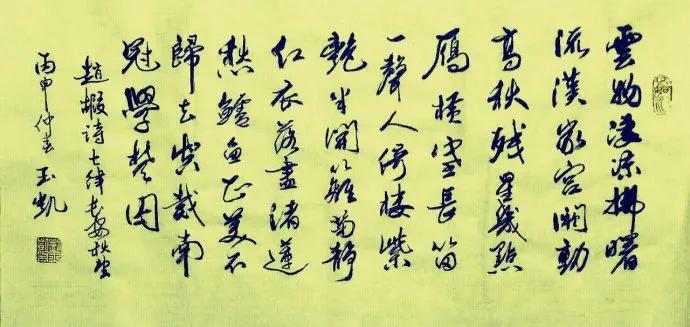 雲物淒凉拂曙
流漢家宫闕動
高秋残星幾點
鴈横塞長笛
一聲人倚楼紫
艳半開籬菊静
红衣落盡渚蓮
愁鱸魚正美不
歸去空戴南
冠學楚囚
趙嘏诗七律长安秋望
丙申仲春玉凯